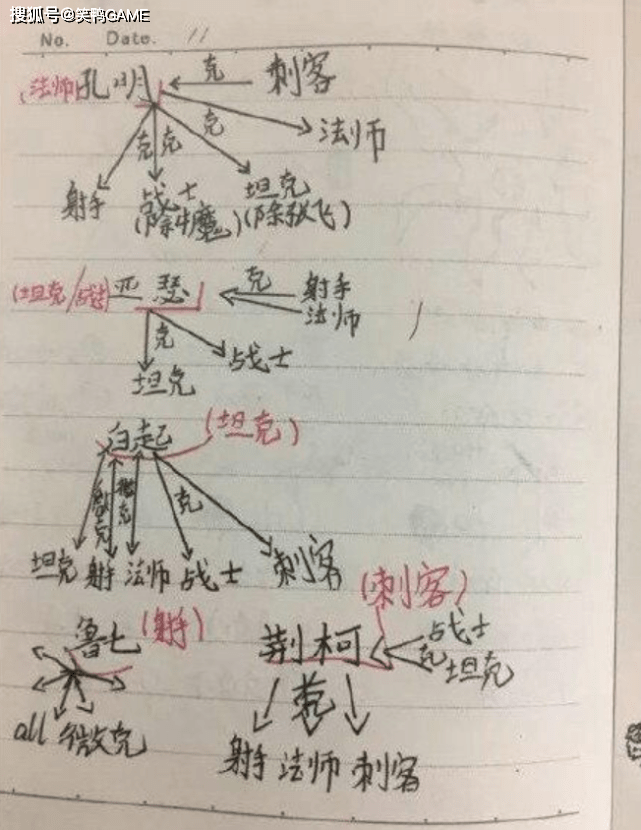 搜狐号@笑鸭GAME
No. Date. 11
(法师)孔明 克 刺客
克 克 克 法师
射手 战士 坦克
(除牛魔) (除张飞)
(坦克/战士) 亚瑟 克 射手
法师
克
坦克 战士
白起 (坦克)
微克 微克 克
坦克 射手 法师 战士 刺客
鲁七 (射手) (刺客)
荆柯 克 战士
坦克
克
all 微克
射手 法师 刺客